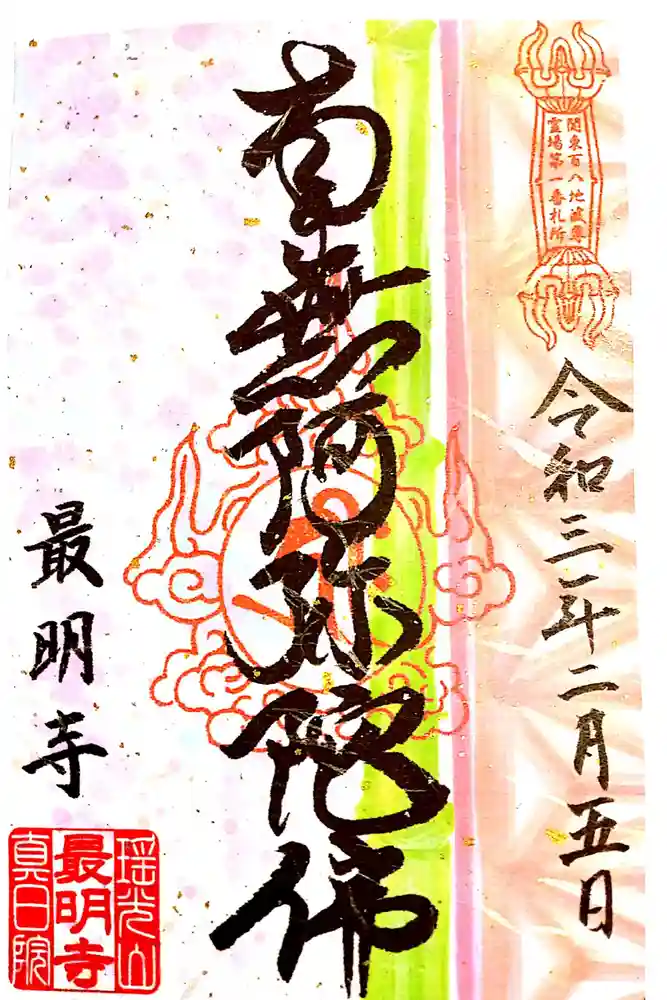 関東百八地蔵尊
霊場第一番札所
令和三年二月五日
南無阿弥陀佛
最明寺
瑶光山
最明寺
真日院